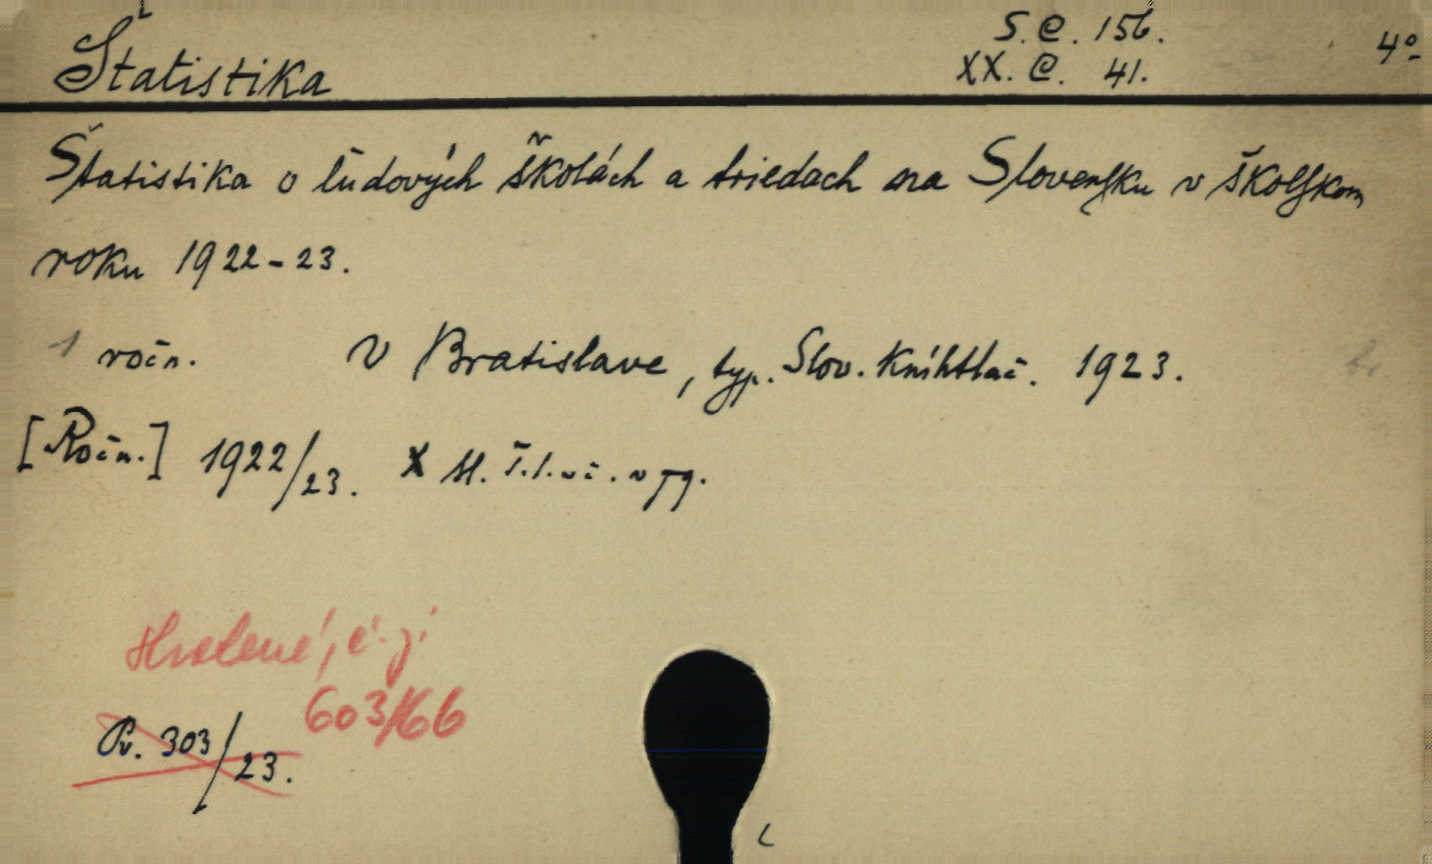 Štatistika
S.C. 156.
XX. C. 41.
4°
Štatistika o ľudových školách a triedach na Slovensku v školskom
roku 1922-23.
1 ročn. V Bratislave, typ. Slov. Kníhtlač. 1923.
[Ročn.] 1922/23. X
č. j.
603/66
Pr. 303/23.